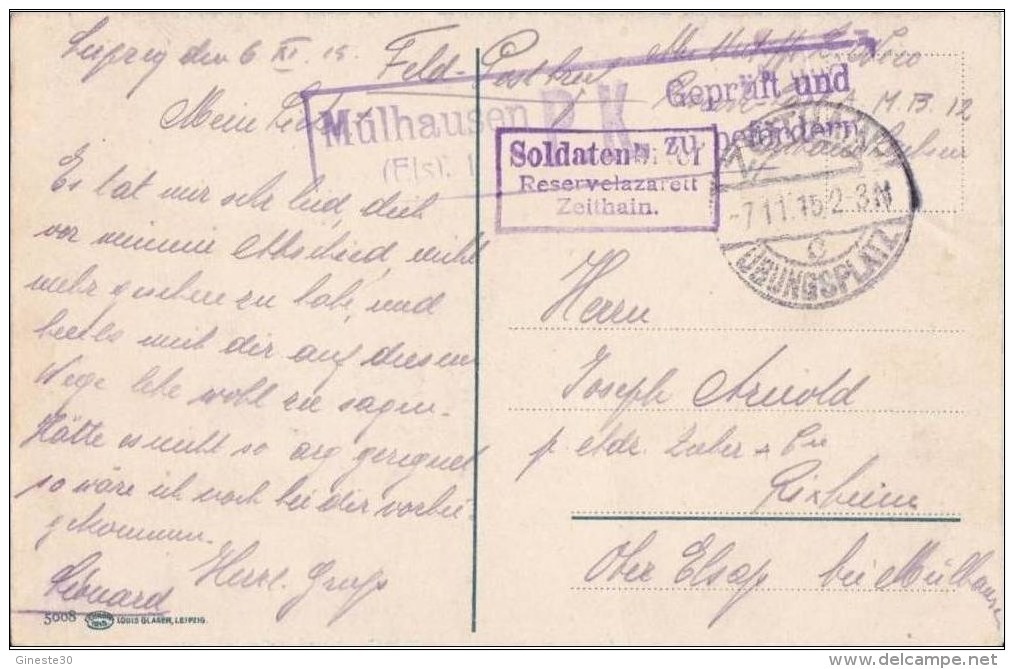 Leipzig den 6 XI. 15.
Feld-Postbrief
Mein Lieber
Es tat mir sehr leid dich
vor meinem Abschied nicht
mehr gesehen zu habe, und
mit dir auf diesem
Wege lebe wohl zu sagen.
Hätte es nicht so arg geregnet
so wäre ich noch bei dir vorbei
gekommen.
Herzl. Gruß
Léonard
5008 LOUIS GLASER, LEIPZIG.
Mülhausen P.K.
(Els).
Geprüft und
zu befördern
Soldatenbrief
Reservelazarett
Zeithain.
ZEITHAIN
-7.11.15. 2-3N
c
ÜBUNGSPLATZ
M. B. 12
Herrn
Joseph Arnold
p. adr. Zuber & Cie
Rixheim
Ober Elsaß bei Mülhausen
Gineste30
delcampe.net